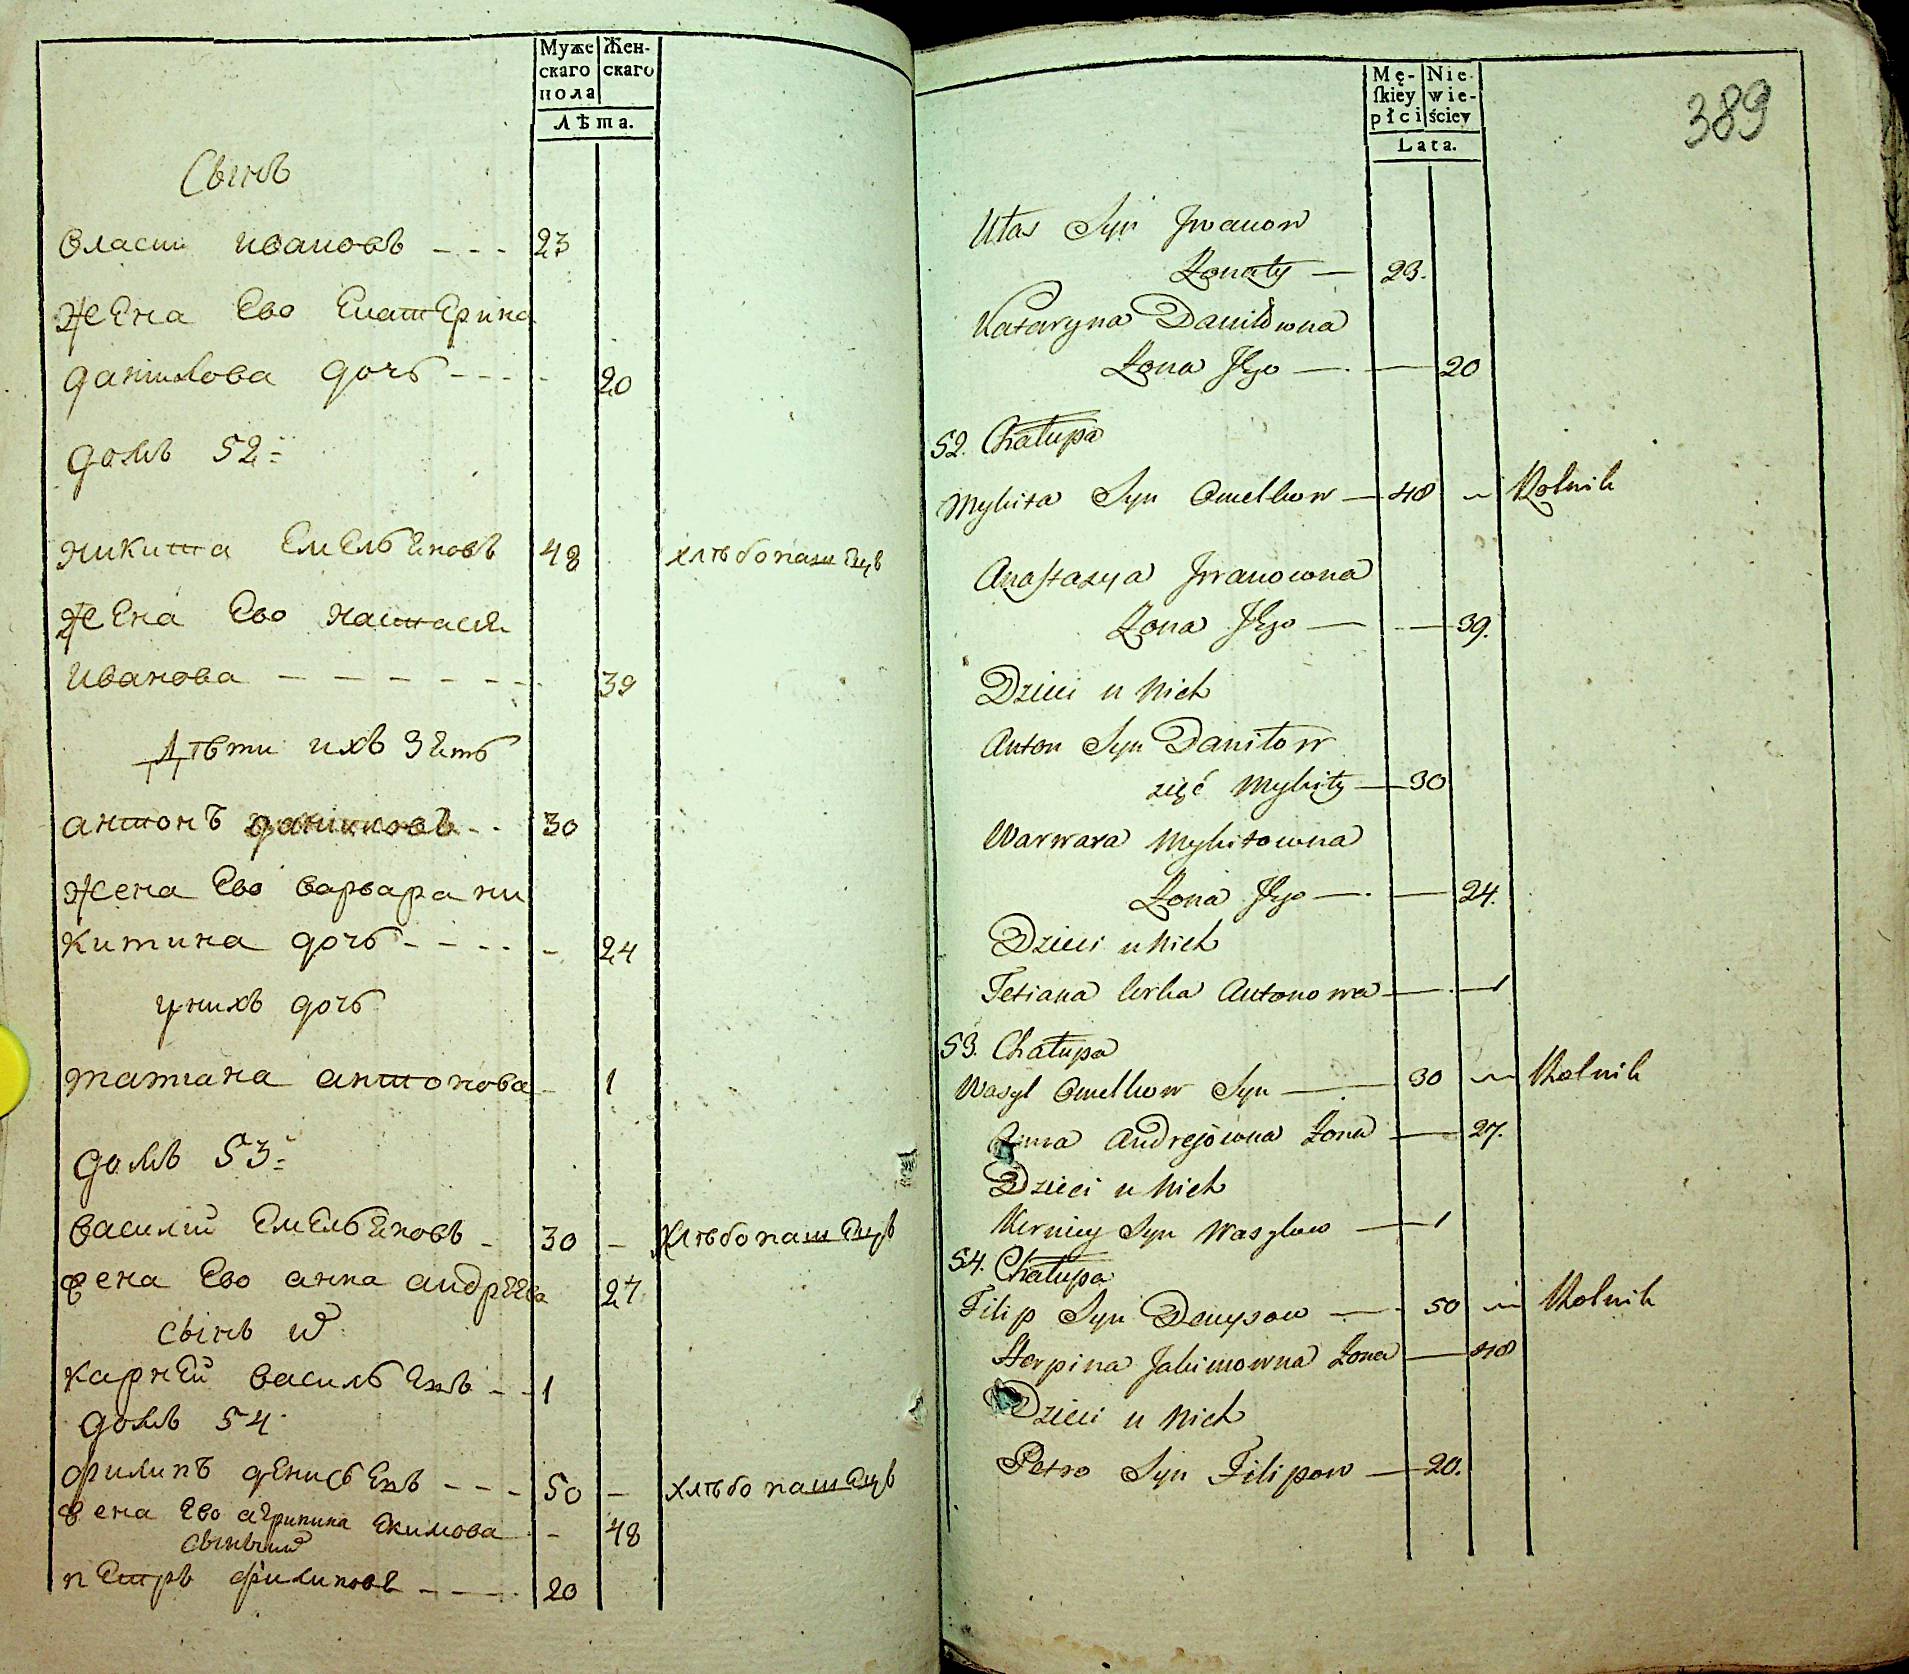 Муже
скаго
пола
Жен-
скаго
Лѣта.
Сынъ
власий ивановъ - - - 23
жена Ево Екатерина
данилова дочь - - - - 20
домъ 52
никита Емельяновъ 48 хлѣбопашецъ
жена Ево настасия
иванова - - - - - - 39
Дѣти ихъ зять
антонъ даниловъ - - 30
жена Ево варвара ни
китина дочь - - - - - 24
у нихъ дочь
татиана антонова - 1
домъ 53
василий Емельяновъ - 30 - Хлѣбопашецъ
жена Ево анна андрѣева 27
сынъ
карней васильевъ - - 1
домъ 54
филипъ денисьевъ - - - 50 - хлѣбопашецъ
жена Ево агрипина Екимова - 48
сынъ
петръ филиповъ - - - 20
389
Mę-
ſkiey
płci
Nie-
wie-
ściey
Lata.
Ułas Syn Jwanow
Żonaty — 23.
Kataryna Daniłowna
Żona Jego — - — 20
52. Chałupa
Mykita Syn Omelkow — 48 ~ Rolnik
Anastazya Jwanowna
Żona Jego — - — 39.
Dzieci u Nich
Anton Syn Daniłow
zięć Mykity — 30
Warwara Mykitowna
Żona Jego — - — 24.
Dzieci u Nich
Tetiana Corka Antonowa — - — 1
53. Chałupa
Wasyl Omelkow Syn — 30 ~ Rolnik
Anna Andrejowna Żona — 27.
Dzieci u Nich
Kerniey Syn Wasylow — 1
54. Chałupa
Filip Syn Denysow — 50 ~ Rolnik
Horpina Jakimowna Żona — 48
Dzieci u Nich
Petro Syn Filipow — 20.